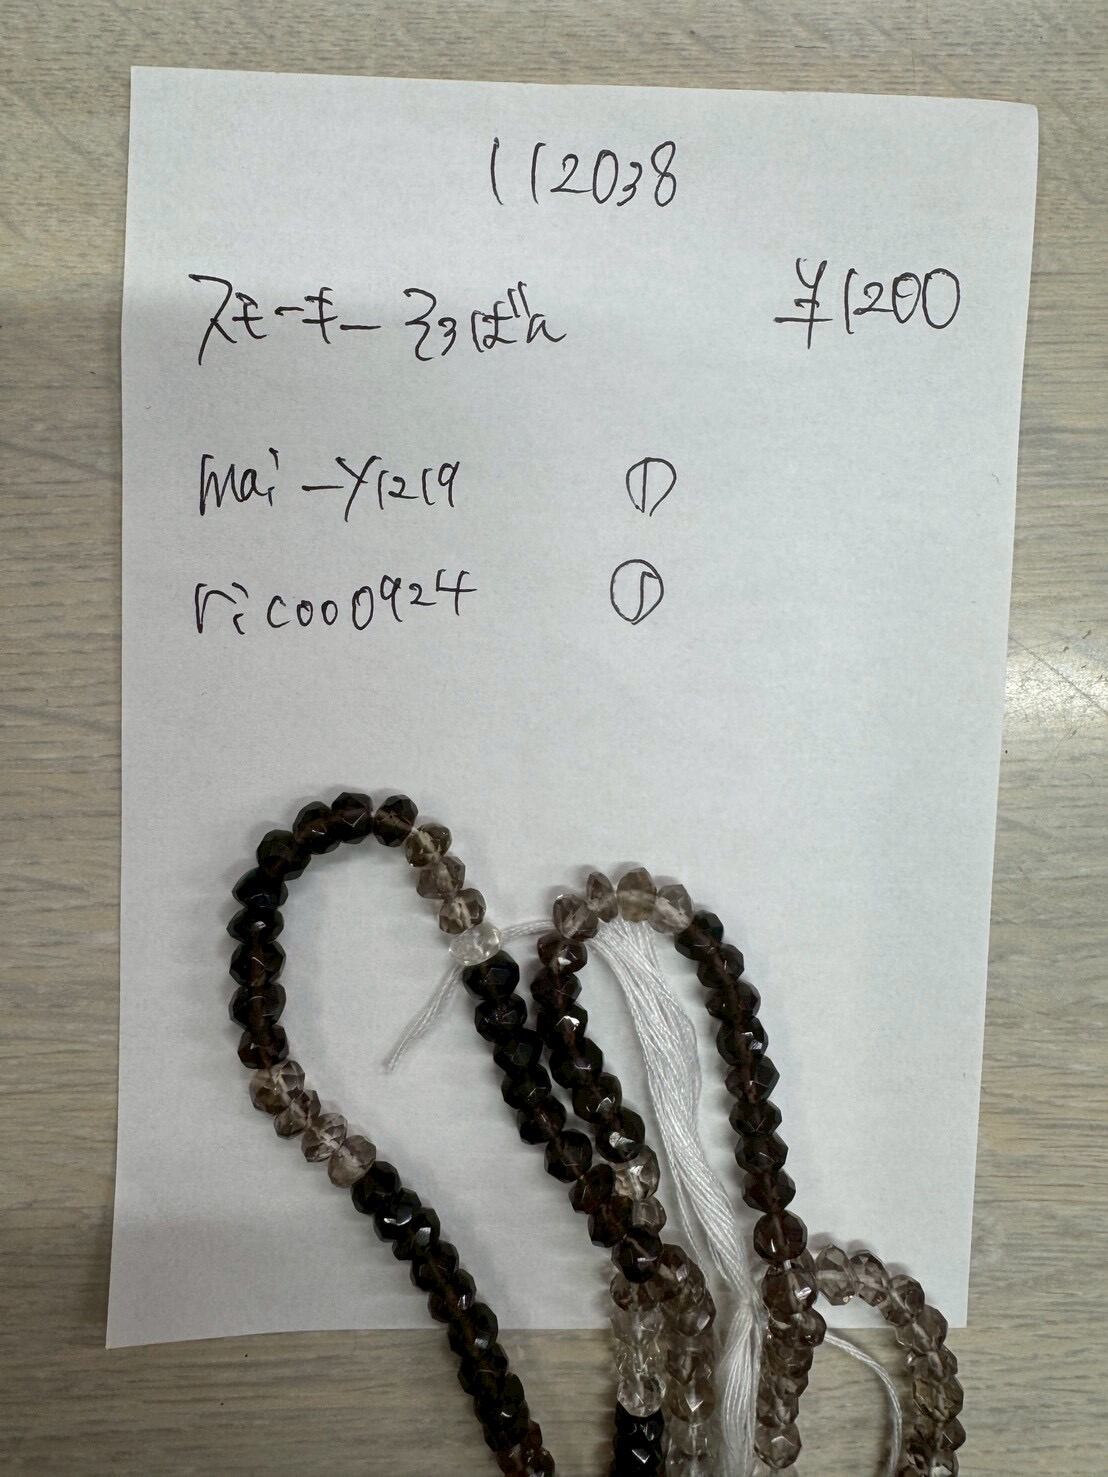 112038
スモーキーそろばん ¥1200
mai-y1219 ①
rico00924 ①